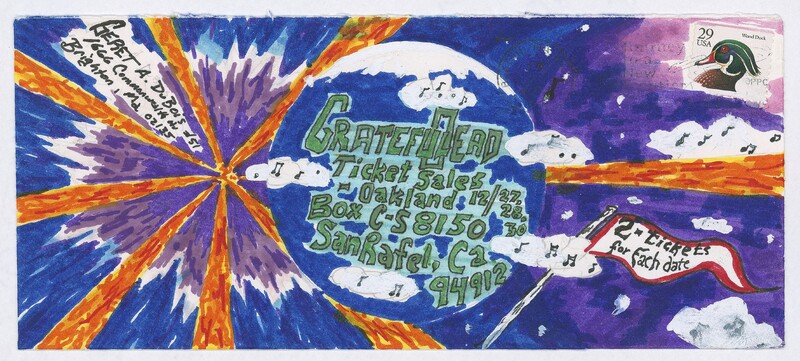 GERET A. DUBOIS #51
1666 Commonwealth Av
Brighton, Ma 02135
GRATEFUL DEAD
Ticket Sales
- Oakland: 12/27,
28,
30
Box C-S 8150
San Rafel, Ca
94912
29
USA
Wood Duck
2 - tickets
for Each date